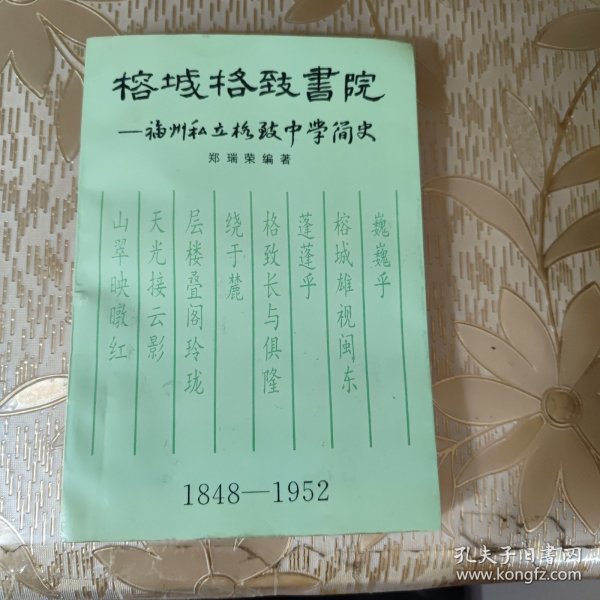 榕城格致書院
—福州私立格致中学简史
郑瑞荣编著
巍巍乎
榕城雄视闽东
蓬蓬乎
格致长与俱隆
绕于麓
层楼叠阁玲珑
天光接云影
山翠映暾红
1848—1952
孔夫子旧书网
www.kongfz.com